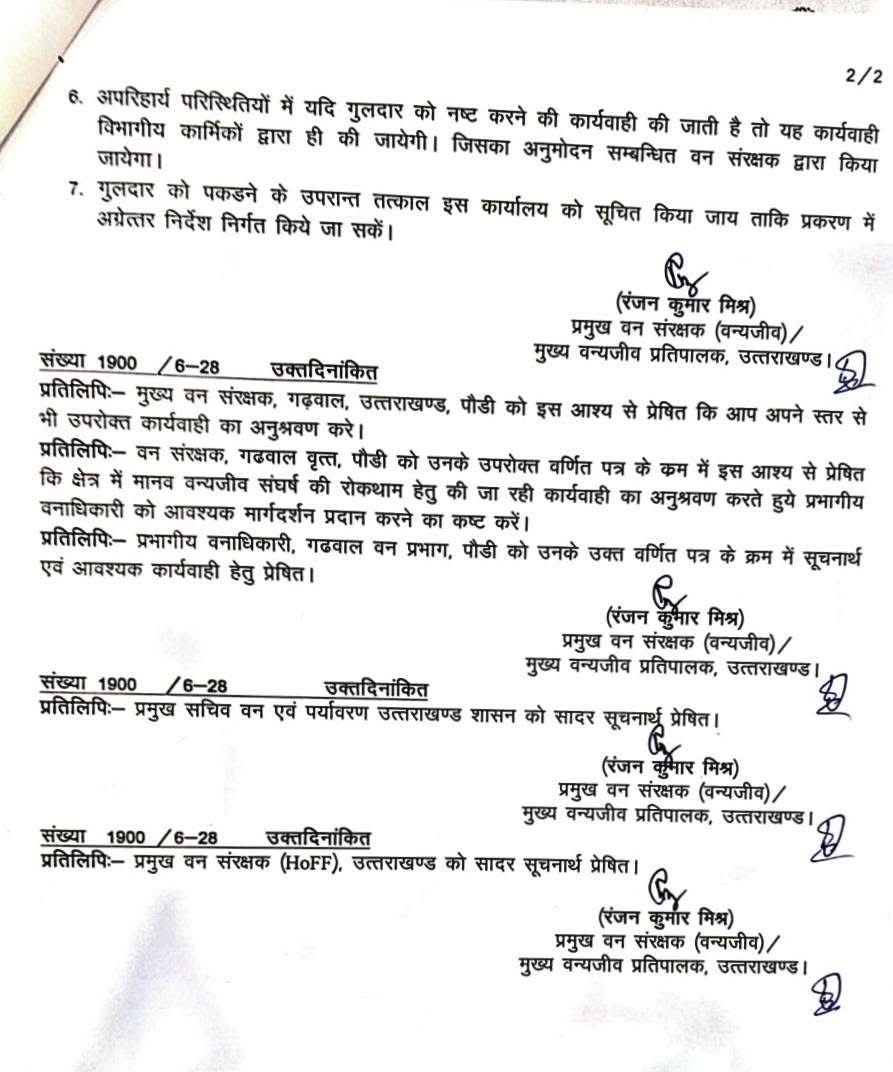 2/2
6. अपरिहार्य परिस्थितियों में यदि गुलदार को नष्ट करने की कार्यवाही की जाती है तो यह कार्यवाही
विभागीय कार्मिकों द्वारा ही की जायेगी। जिसका अनुमोदन सम्बन्धित वन संरक्षक द्वारा किया
जायेगा।
7. गुलदार को पकडने के उपरान्त तत्काल इस कार्यालय को सूचित किया जाय ताकि प्रकरण में
अग्रेत्तर निर्देश निर्गत किये जा सकें।
(रंजन कुमार मिश्र)
प्रमुख वन संरक्षक (वन्यजीव)/
मुख्य वन्यजीव प्रतिपालक, उत्तराखण्ड।
संख्या 1900 /6–28 उक्तदिनांकित
प्रतिलिपिः– मुख्य वन संरक्षक, गढ़वाल, उत्तराखण्ड, पौडी को इस आश्य से प्रेषित कि आप अपने स्तर से
भी उपरोक्त कार्यवाही का अनुश्रवण करे।
प्रतिलिपिः– वन संरक्षक, गढवाल वृत्त, पौडी को उनके उपरोक्त वर्णित पत्र के कम में इस आश्य से प्रेषित
कि क्षेत्र में मानव वन्यजीव संघर्ष की रोकथाम हेतु की जा रही कार्यवाही का अनुश्रवण करते हुये प्रभागीय
वनाधिकारी को आवश्यक मार्गदर्शन प्रदान करने का कष्ट करें।
प्रतिलिपिः– प्रभागीय वनाधिकारी, गढवाल वन प्रभाग, पौडी को उनके उक्त वर्णित पत्र के क्रम में सूचनार्थ
एवं आवश्यक कार्यवाही हेतु प्रेषित।
(रंजन कुमार मिश्र)
प्रमुख वन संरक्षक (वन्यजीव)/
मुख्य वन्यजीव प्रतिपालक, उत्तराखण्ड।
संख्या 1900 /6–28 उक्तदिनांकित
प्रतिलिपिः– प्रमुख सचिव वन एवं पर्यावरण उत्तराखण्ड शासन को सादर सूचनार्थ प्रेषित।
(रंजन कुमार मिश्र)
प्रमुख वन संरक्षक (वन्यजीव)/
मुख्य वन्यजीव प्रतिपालक, उत्तराखण्ड।
संख्या 1900 /6–28 उक्तदिनांकित
प्रतिलिपिः– प्रमुख वन संरक्षक (HoFF), उत्तराखण्ड को सादर सूचनार्थ प्रेषित।
(रंजन कुमार मिश्र)
प्रमुख वन संरक्षक (वन्यजीव)/
मुख्य वन्यजीव प्रतिपालक, उत्तराखण्ड।